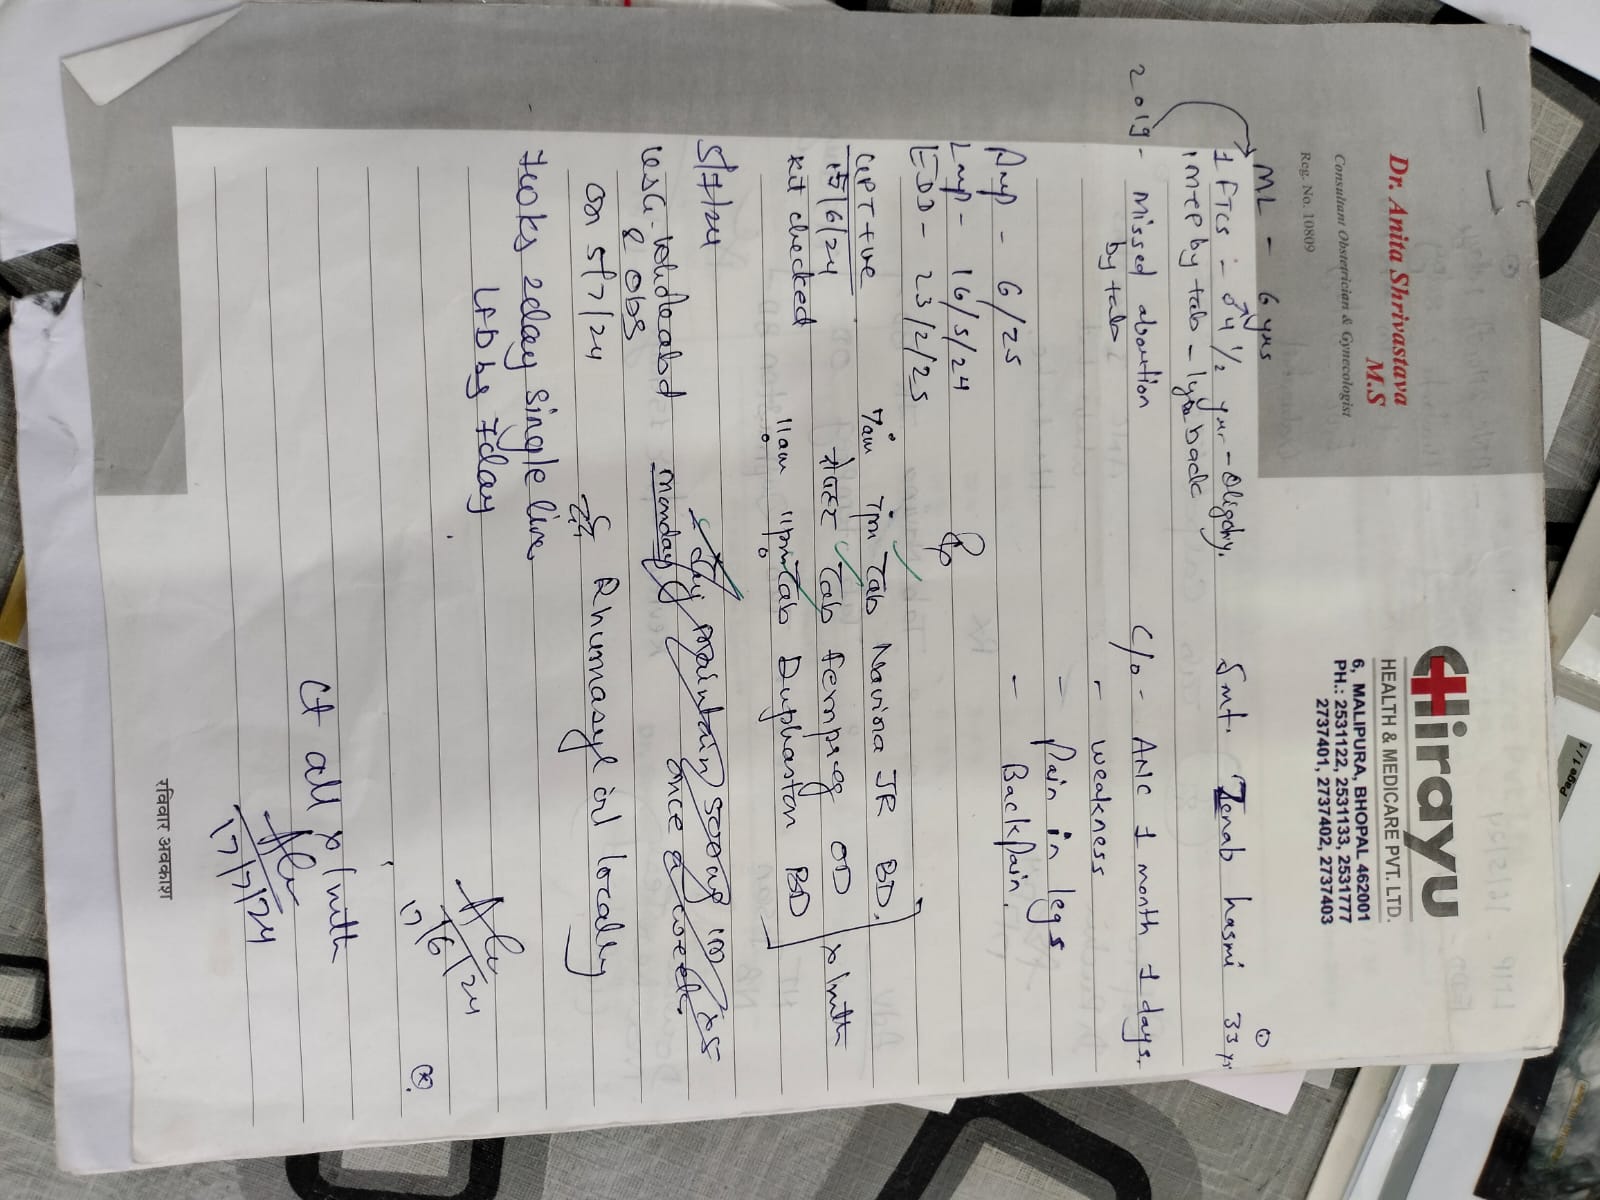 Dr. Anita Shrivastava
M.S
Consultant Obstetrician & Gynecologist
Reg. No. 10809
Hirayu
HEALTH & MEDICARE PVT. LTD.
6, MALIPURA, BHOPAL 462001
PH.: 2531122, 2531133, 2531777
2737401, 2737402, 2737403
ML - 6 yrs
1 FTCS - ♂ 4 1/2 yr - oligohy.
1 MTP by tab - 1 yr back
2019 - Missed abortion
by tab
Smt. Zenab hasmi 33 yr
C/o - ANC 1 month 1 days.
- weakness
- Pain in legs
- Back pain.
PMP - 6/25
LMP - 16/5/24
EDD - 23/2/25
UPT +ve
15/6/24
kit checked
Rp
7am 7pm Tab Navina JR BD.
Tab fempreg OD x 1 mnth
11am 11pm Tab Duphaston BD
5/7/24
monday
Inj maintain 500mg im x 5
once a week
& obs
on 5/7/24
Rhumasyl oil locally
7 woks 2day Single live
17/6/24
Ct all x 1 mnth
17/7/24
रविवार अवकाश
Page 1 / 1